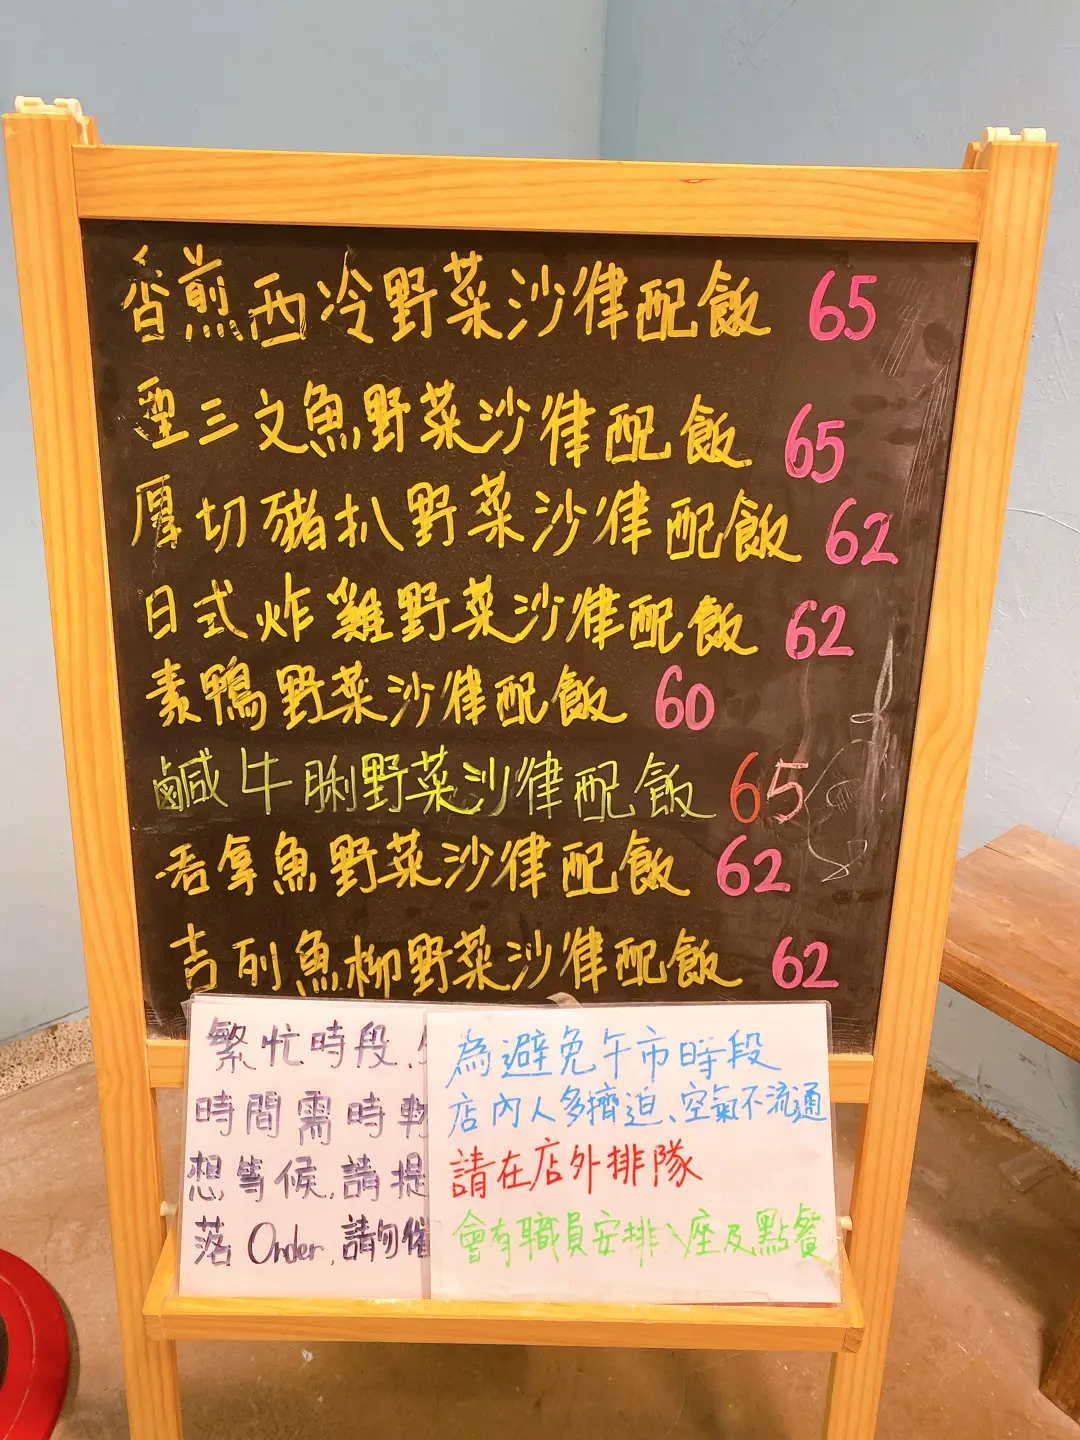 香煎西冷野菜沙律配飯 65
三文魚野菜沙律配飯 65
厚切豬扒野菜沙律配飯 62
日式炸雞野菜沙律配飯 62
素鴨野菜沙律配飯 60
鹹牛脷野菜沙律配飯 65
吞拿魚野菜沙律配飯 62
吉列魚柳野菜沙律配飯 62
繁忙時段,
時間需時較
想等候,請提
落Order,請勿催
為避免午市時段
店內人多擠迫、空氣不流通
請在店外排隊
會有職員安排入座及點餐